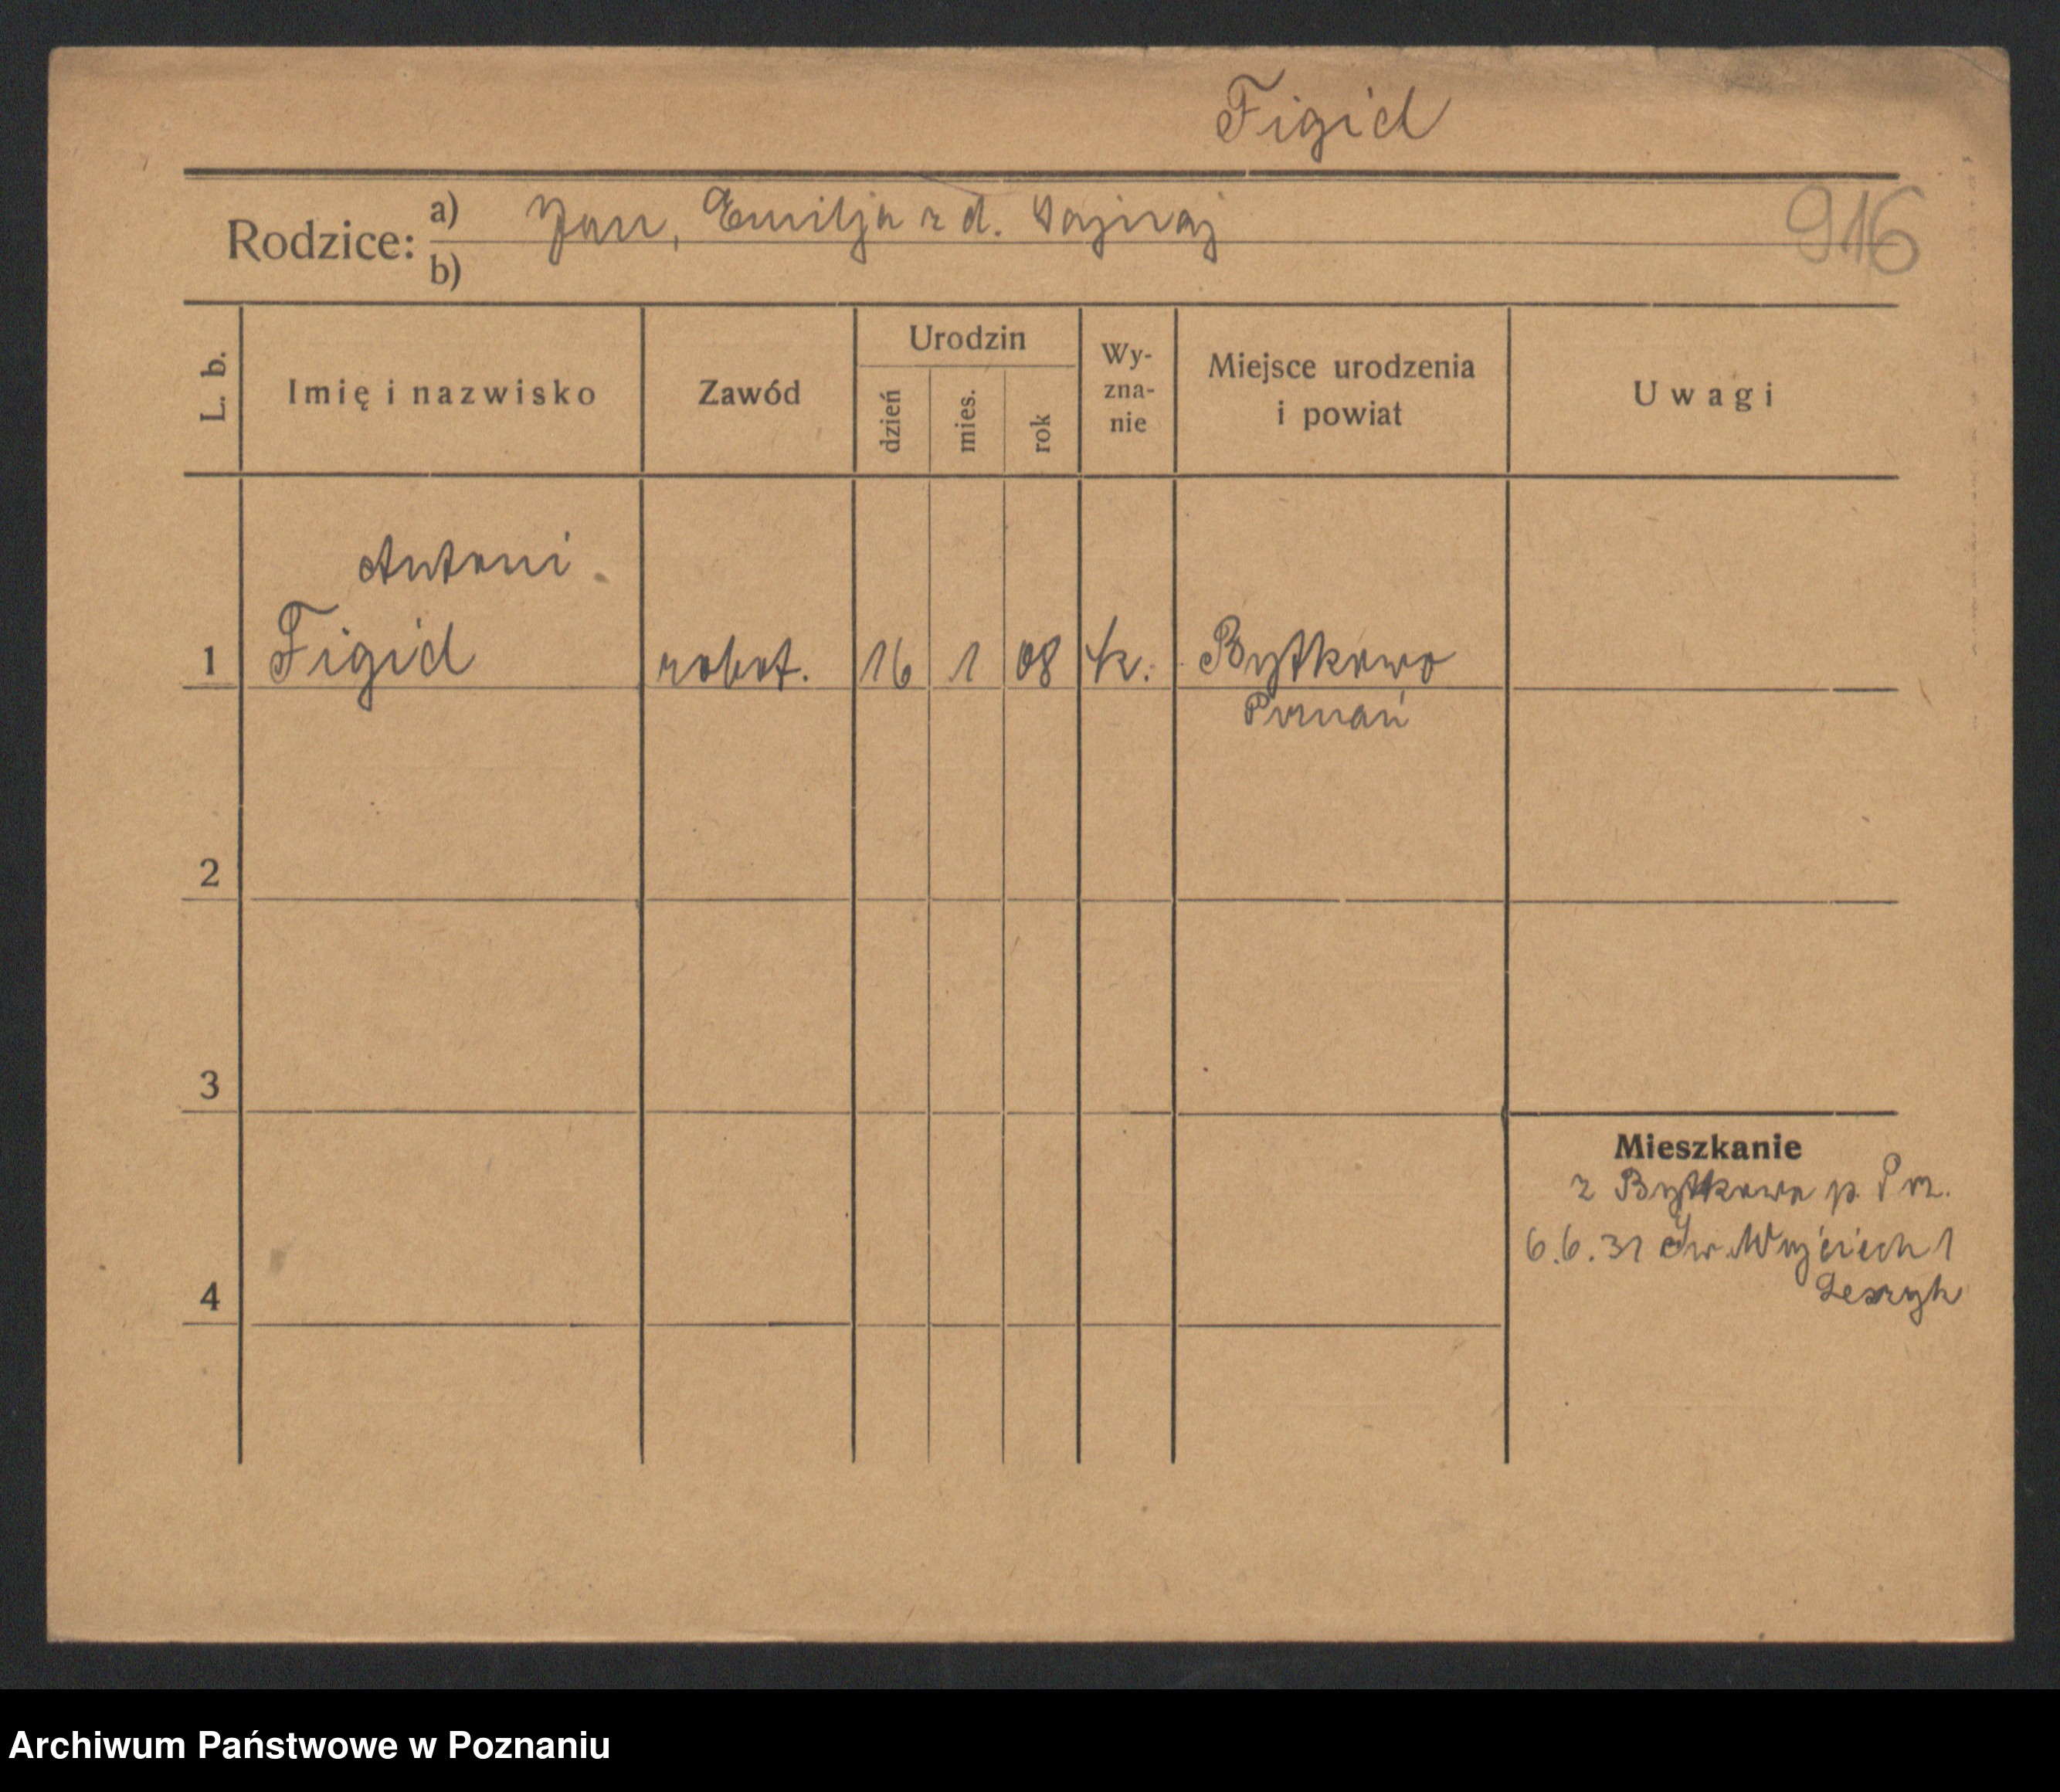 Figid
Rodzice: a) Jan, Emilja z d.
b)
916
L. b.
Imię i nazwisko
Zawód
Urodzin
dzień
mies.
rok
Wy-
zna-
nie
Miejsce urodzenia
i powiat
Uwagi
Antoni
1 Figid robot. 16 1 08 k. Bytkowo
Poznań
2
3
Mieszkanie
z Bytkowa p. Pozn.
6.6.31 Św. Wojciech 1
4
Archiwum Państwowe w Poznaniu